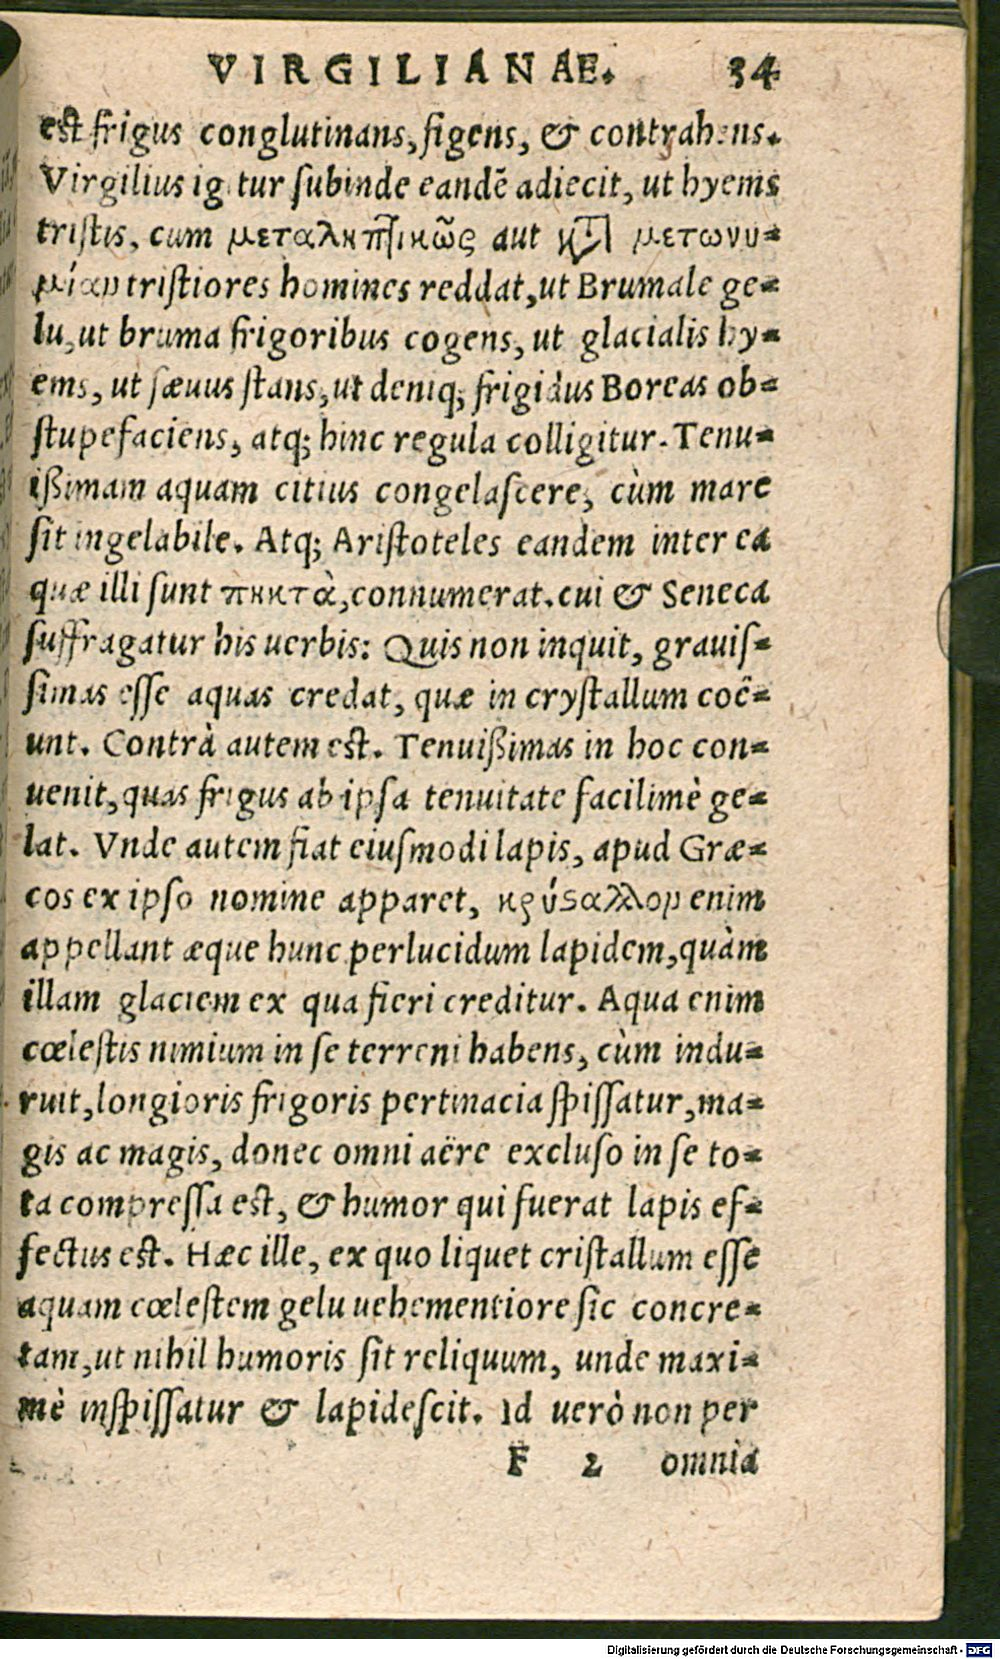 VIRGILIANAE. 34
est frigus conglutinans, figens, & contrahens.
Virgilius igitur subinde eandē adiecit, ut hyems
tristis, cum μεταληπτικῶς aut κτ̃ μετωνυ-
μίαν tristiores homines reddat, ut Brumale ge-
lu, ut bruma frigoribus cogens, ut glacialis hy-
ems, ut sæuus stans, ut deniq; frigidus Boreas ob-
stupefaciens, atq; hinc regula colligitur. Tenu-
ißimam aquam citius congelascere, cùm mare
sit ingelabile. Atq; Aristoteles eandem inter ea
quæ illi sunt πηκτὰ, connumerat. cui & Seneca
suffragatur his uerbis: Quis non inquit, grauis-
simas esse aquas credat, quæ in crystallum coë-
unt. Contrà autem est. Tenuißimas in hoc con-
uenit, quas frigus ab ipsa tenuitate facilimè ge-
lat. Vnde autem fiat eiusmodi lapis, apud Græ-
cos ex ipso nomine apparet, κρύσαλλον enim
appellant æque hunc perlucidum lapidem, quàm
illam glaciem ex qua fieri creditur. Aqua enim
cœlestis nimium in se terreni habens, cùm indu-
ruit, longioris frigoris pertinacia spissatur, ma-
gis ac magis, donec omni aëre excluso in se to-
ta compressa est, & humor qui fuerat lapis ef-
fectus est. Hæc ille, ex quo liquet cristallum esse
aquam cœlestem gelu uehementiore sic concre-
tam, ut nihil humoris sit reliquum, unde maxi-
mè inspissatur & lapidescit. Id uerò non per
F 2 omnia
Digitalisierung gefördert durch die Deutsche Forschungsgemeinschaft - DFG